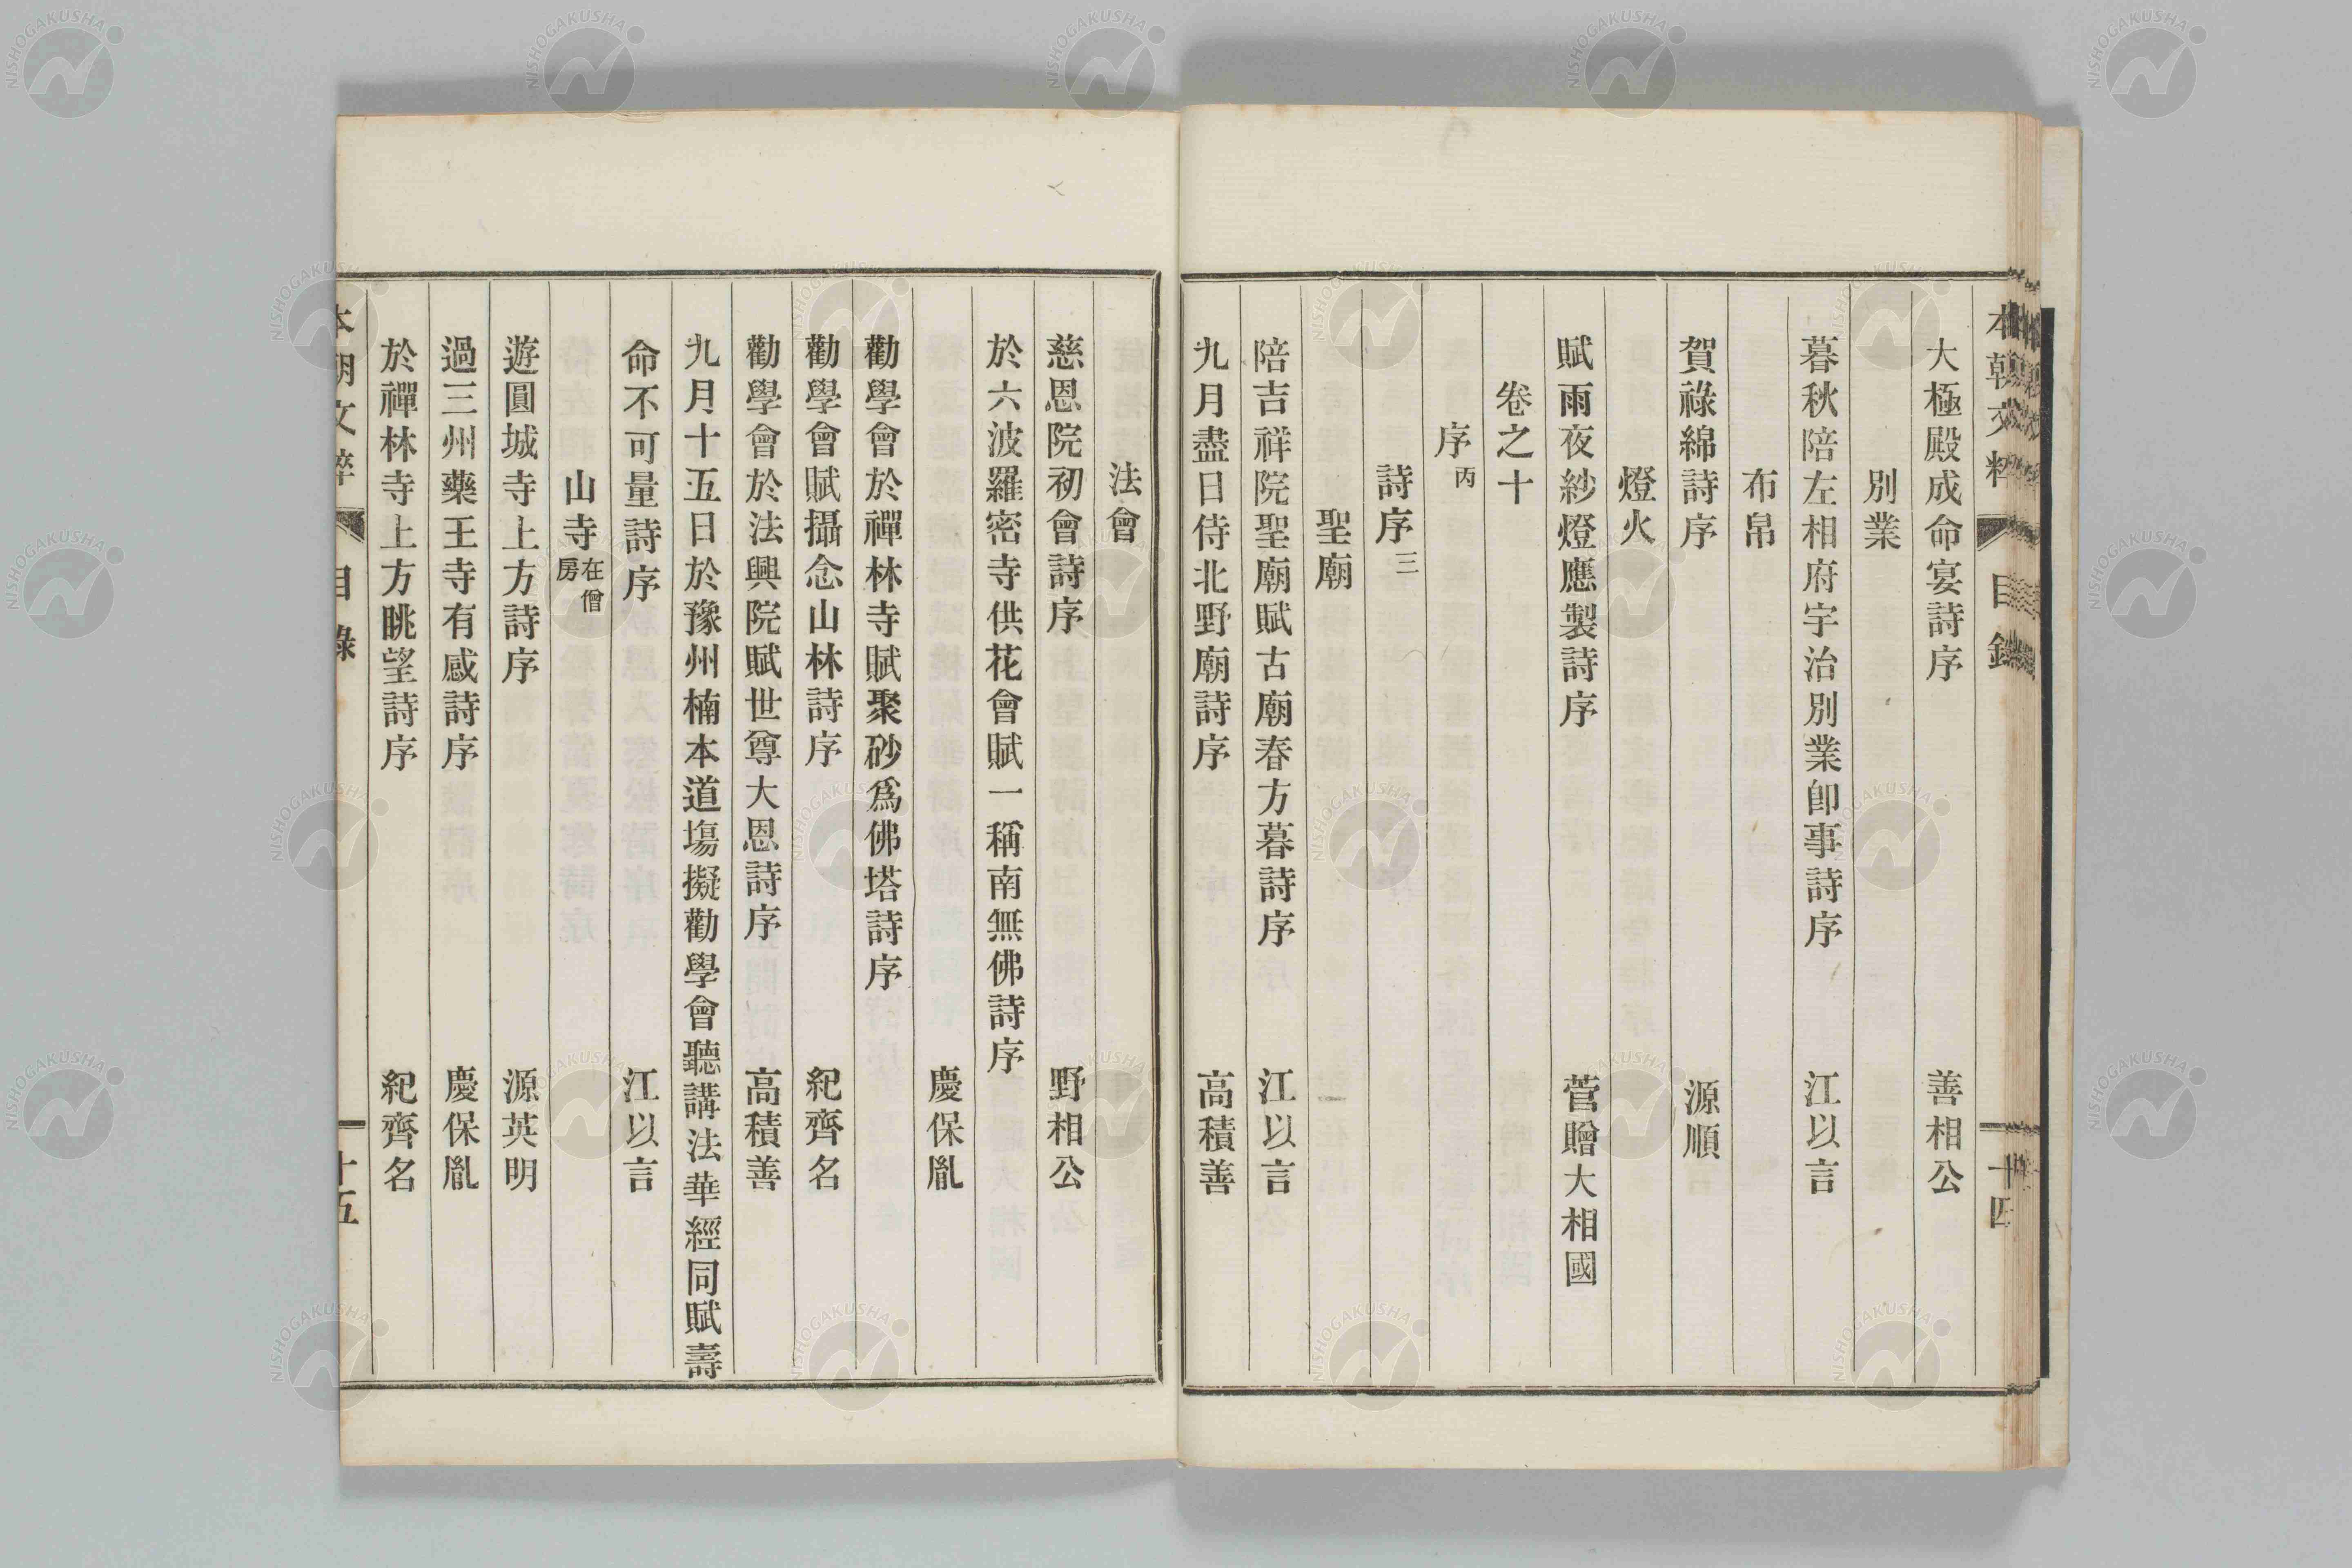 大極殿成命宴詩序 善相公
別業
暮秋陪左相府宇治別業卽事詩序 江以言
布帛
賀祿綿詩序 源順
燈火
賦雨夜紗燈應製詩序 菅贈大相國
卷之十
序丙
詩序三
聖廟
陪吉祥院聖廟賦古廟春方暮詩序 江以言
九月盡日侍北野廟詩序 高積善
法會
慈恩院初會詩序 野相公
於六波羅密寺供花會賦一稱南無佛詩序
慶保胤
勸學會於禪林寺賦聚砂爲佛塔詩序
勸學會賦攝念山林詩序 紀齊名
勸學會於法興院賦世尊大恩詩序 高積善
九月十五日於豫州楠本道塲擬勸學會聽講法華經同賦壽
命不可量詩序 江以言
山寺在僧房
遊圓城寺上方詩序 源英明
過三州藥王寺有感詩序 慶保胤
於禪林寺上方眺望詩序 紀齊名
本朝文粹 目錄 十五
NISHOGAKUSHA